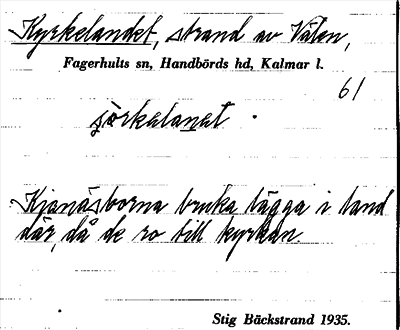 Kyrkelandet, strand av Välen,
Fagerhults sn, Handbörds hd, Kalmar l.
61
Kjanäsborna bruka lägga i land
där, då de ro till kyrkan.
Stig Bäckstrand 1935.